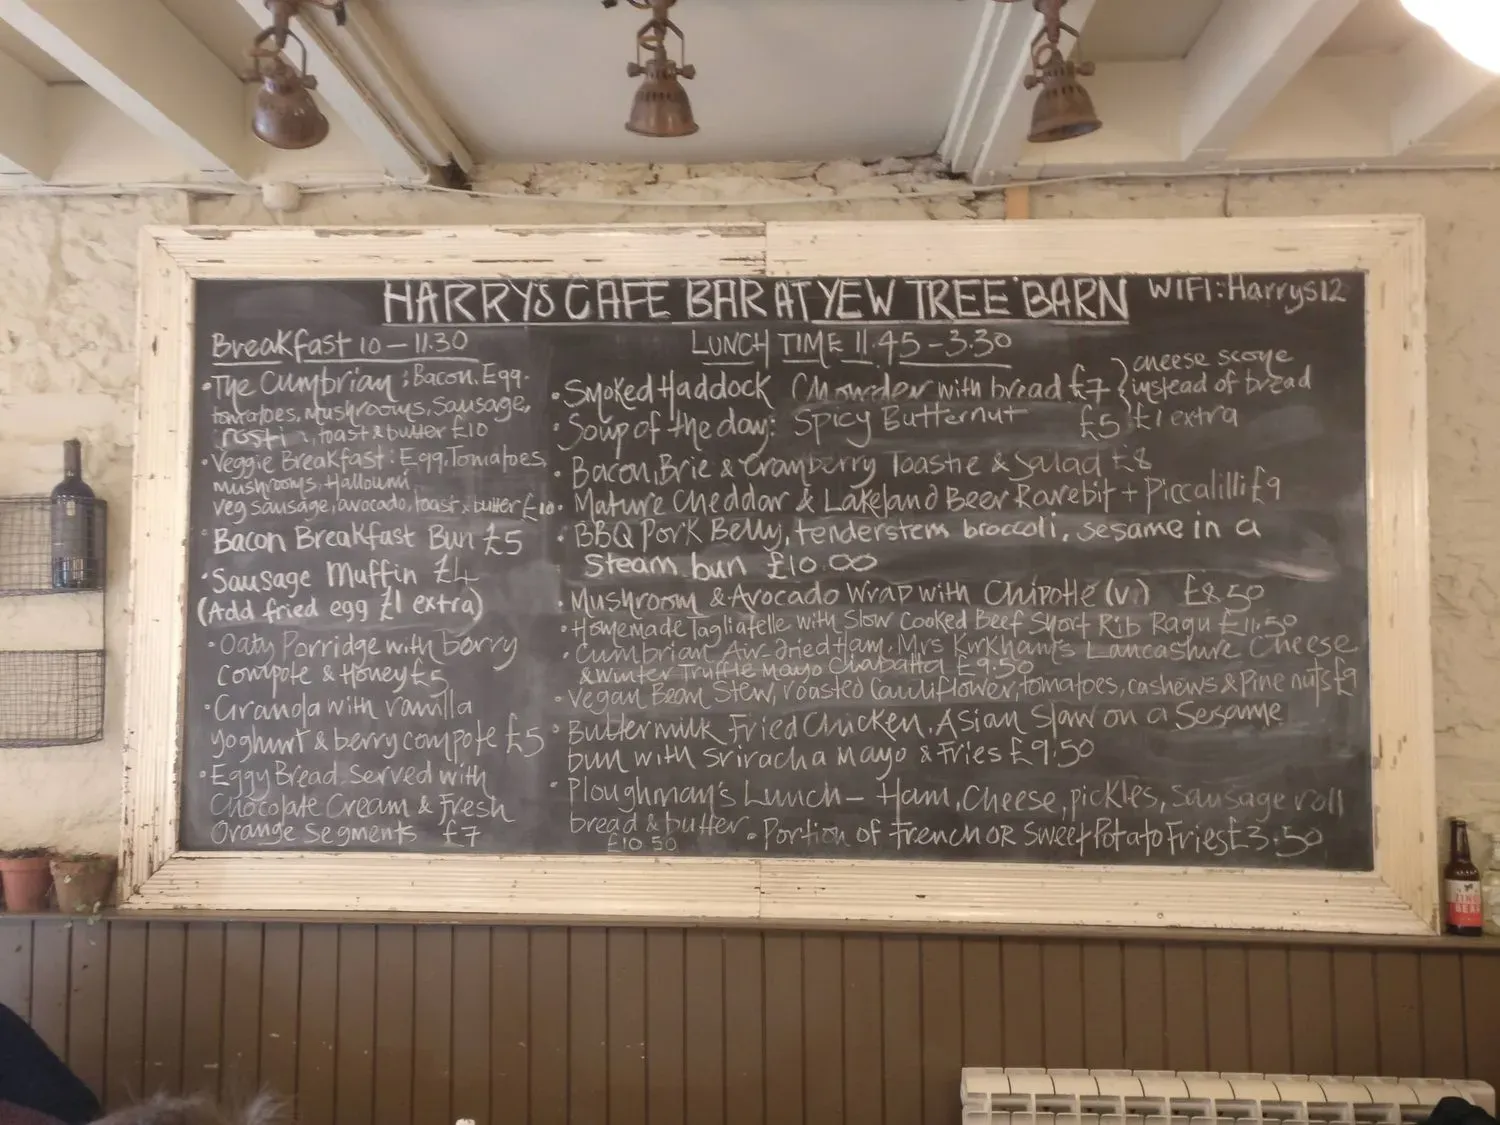 HARRY'S CAFE BAR AT YEW TREE BARN
WIFI: Harrys12
Breakfast 10 – 11.30
• The Cumbrian: Bacon, Egg,
tomatoes, mushrooms, Sausage,
rosti, toast & butter £10
• Veggie Breakfast: Egg, Tomatoes,
mushrooms, Halloumi,
veg sausage, avocado, toast & butter £10
• Bacon Breakfast Bun £5
• Sausage Muffin £4
(Add fried egg £1 extra)
• Oaty Porridge with berry
compote & Honey £5
• Granola with vanilla
yoghurt & berry compote £5
• Eggy Bread. Served with
Chocolate Cream & Fresh
Orange segments £7
LUNCH TIME 11.45 – 3.30
• Smoked Haddock Chowder with bread £7
• Soup of the day: Spicy Butternut £5
cheese scone
instead of bread
£1 extra
• Bacon, Brie & Cranberry Toastie & Salad £8
• Mature Cheddar & Lakeland Beer Rarebit + Piccalilli £9
• BBQ Pork Belly, tenderstem broccoli, sesame in a
steam bun £10.00
• Mushroom & Avocado Wrap with Chipotle (v.) £8.50
• Homemade Tagliatelle with Slow Cooked Beef Short Rib Ragu £11.50
• Cumbrian Air dried Ham, Mrs Kirkham's Lancashire Cheese
& Winter Truffle Mayo Ciabatta £9.50
• Vegan Bean Stew, roasted Cauliflower, tomatoes, cashews & Pine nuts £9
• Buttermilk Fried Chicken, Asian Slaw on a Sesame
bun with Sriracha Mayo & Fries £9.50
• Ploughman's Lunch – Ham, Cheese, pickles, sausage roll
bread & butter
£10.50
• Portion of French OR Sweet Potato Fries £3.50